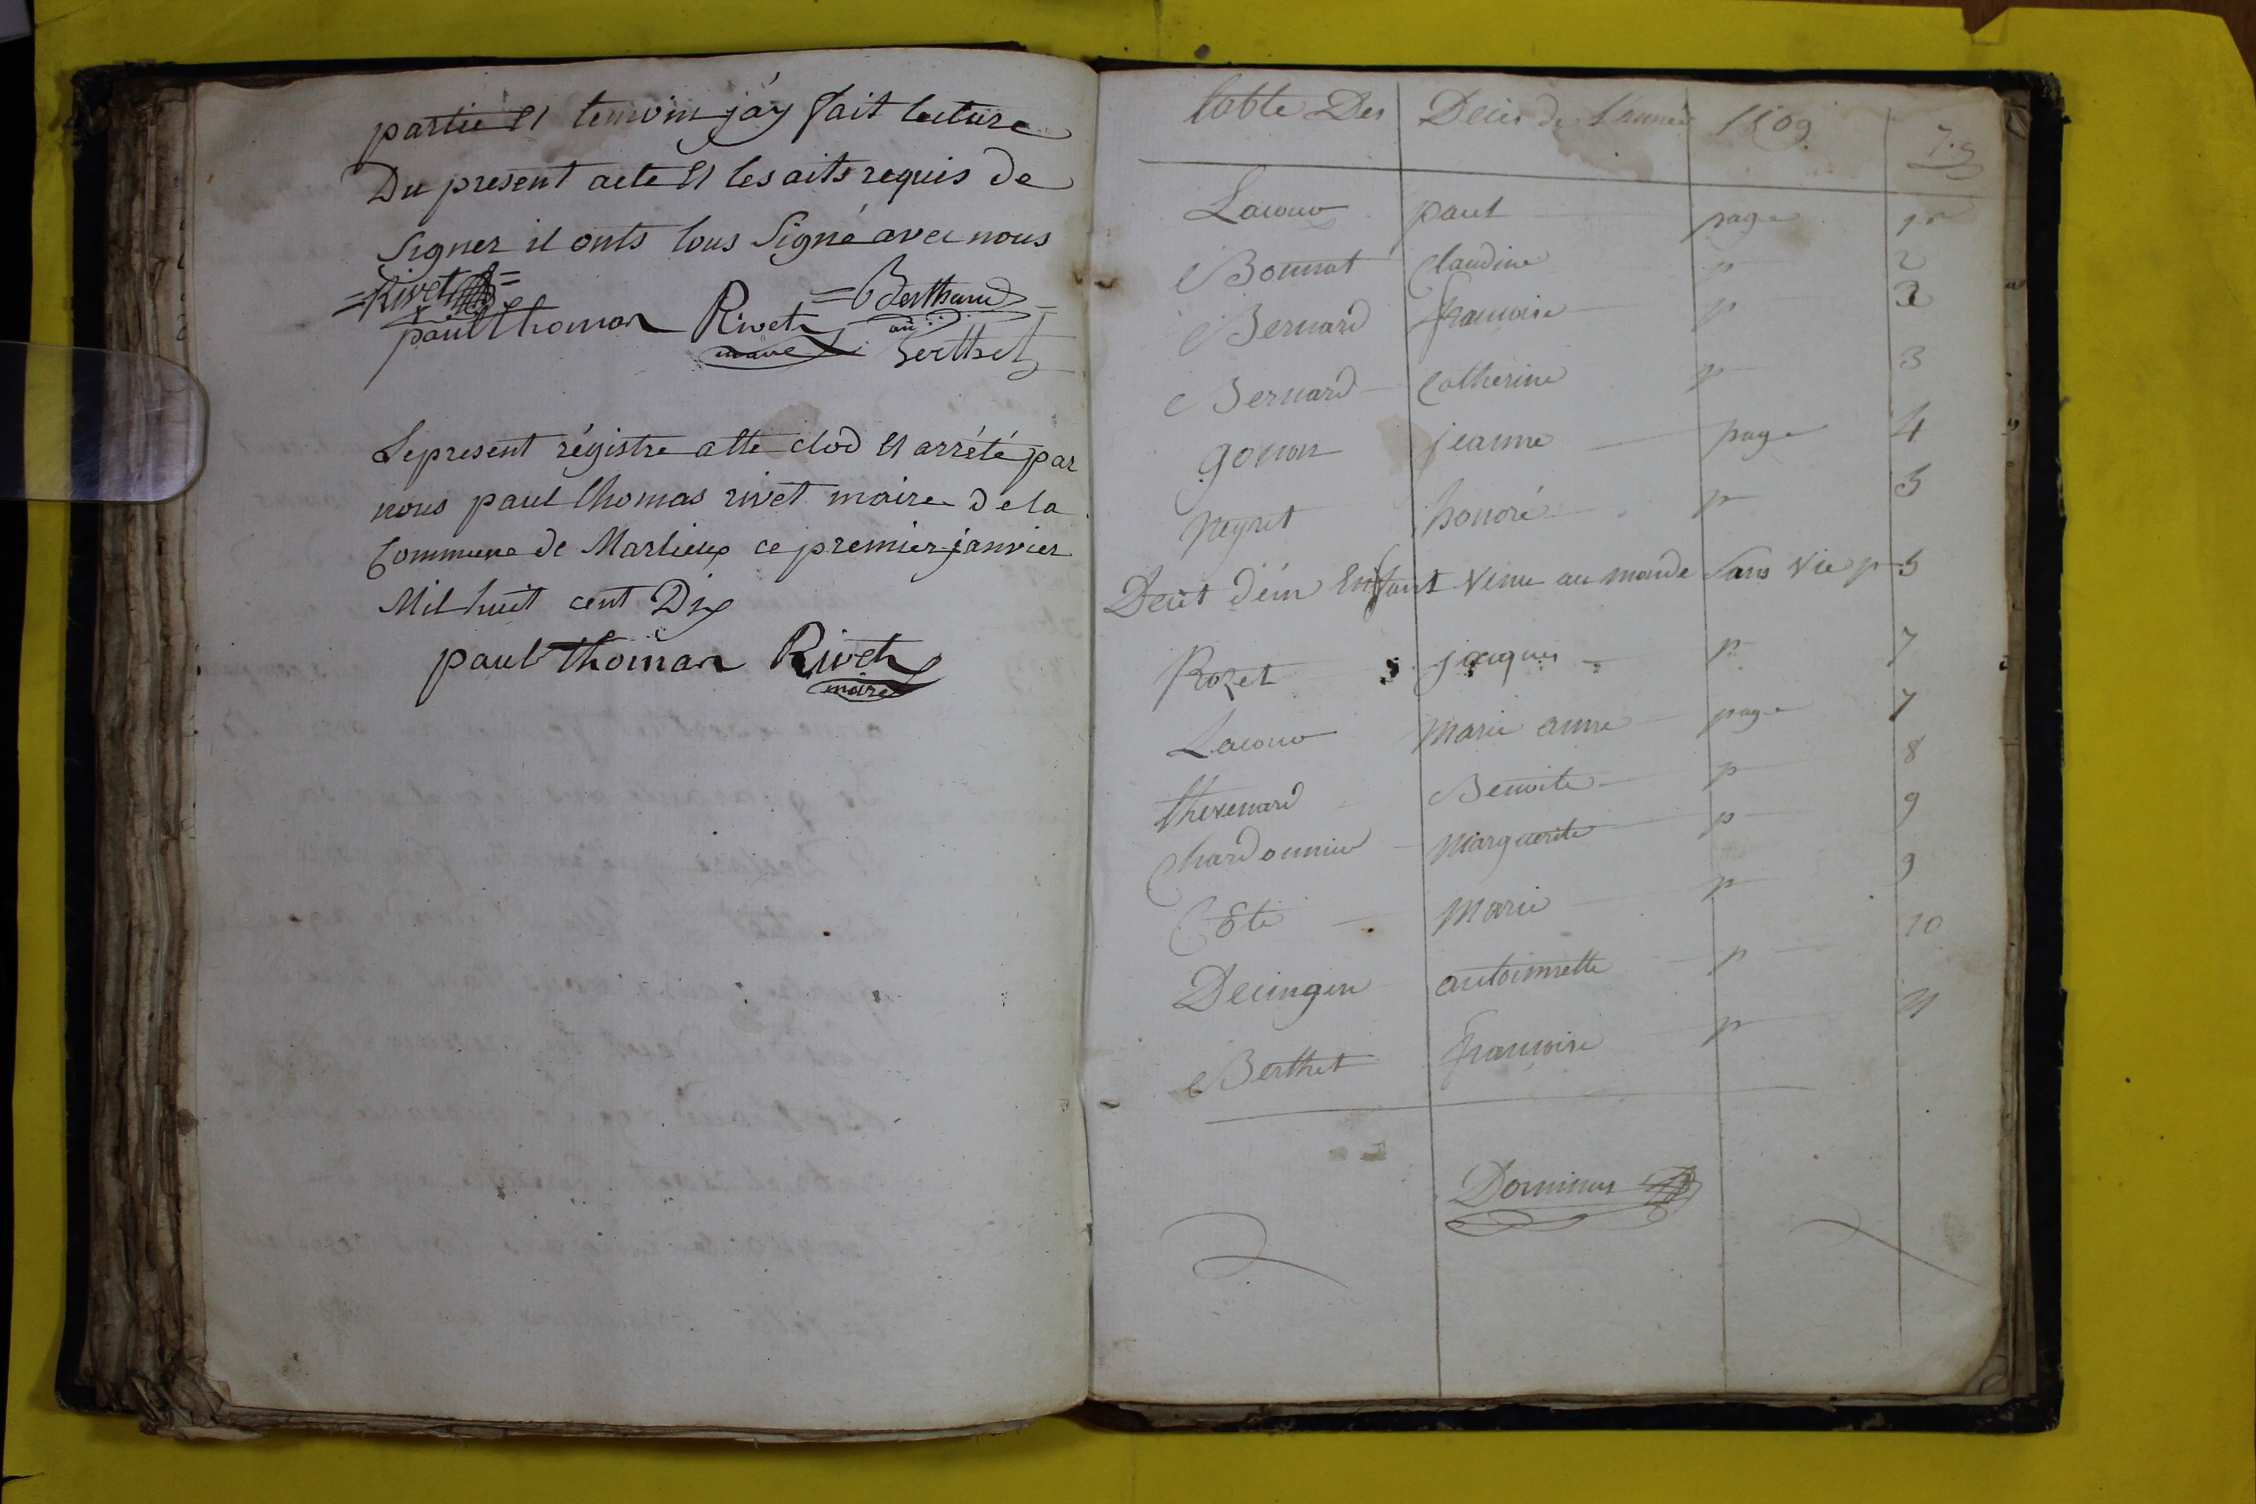 partie et temoin j'ay fait lecture
Du present acte et les aits requis de
signer il onts tous signé avec nous
=Rivet= =Berthaud=
paul thomas Rivet
maire Berthet
Le present régistre atte clod et arrété par
nous paul thomas rivet maire de la
Commune de Marlieux ce premier janvier
Mil huit cent Dix
paul thomas Rivet
maire
table Des Decès de l'année 1809
Lacour paul page 1r
Bonnat Claudine p 2
Bernard françoise p 2
Bernard Catherine p 3
gonon jeanne page 4
Neyret honoré p 5
Decet d'un Enfant venu au monde sans vie p 5
Rozet jacques p 7
Lacour Marie anne page 7
thevenard Benoite p 8
Chardonnier Marguerite p 9
Coti Marie p 9
Decingen antoinette p 10
Berthet françoise p 11